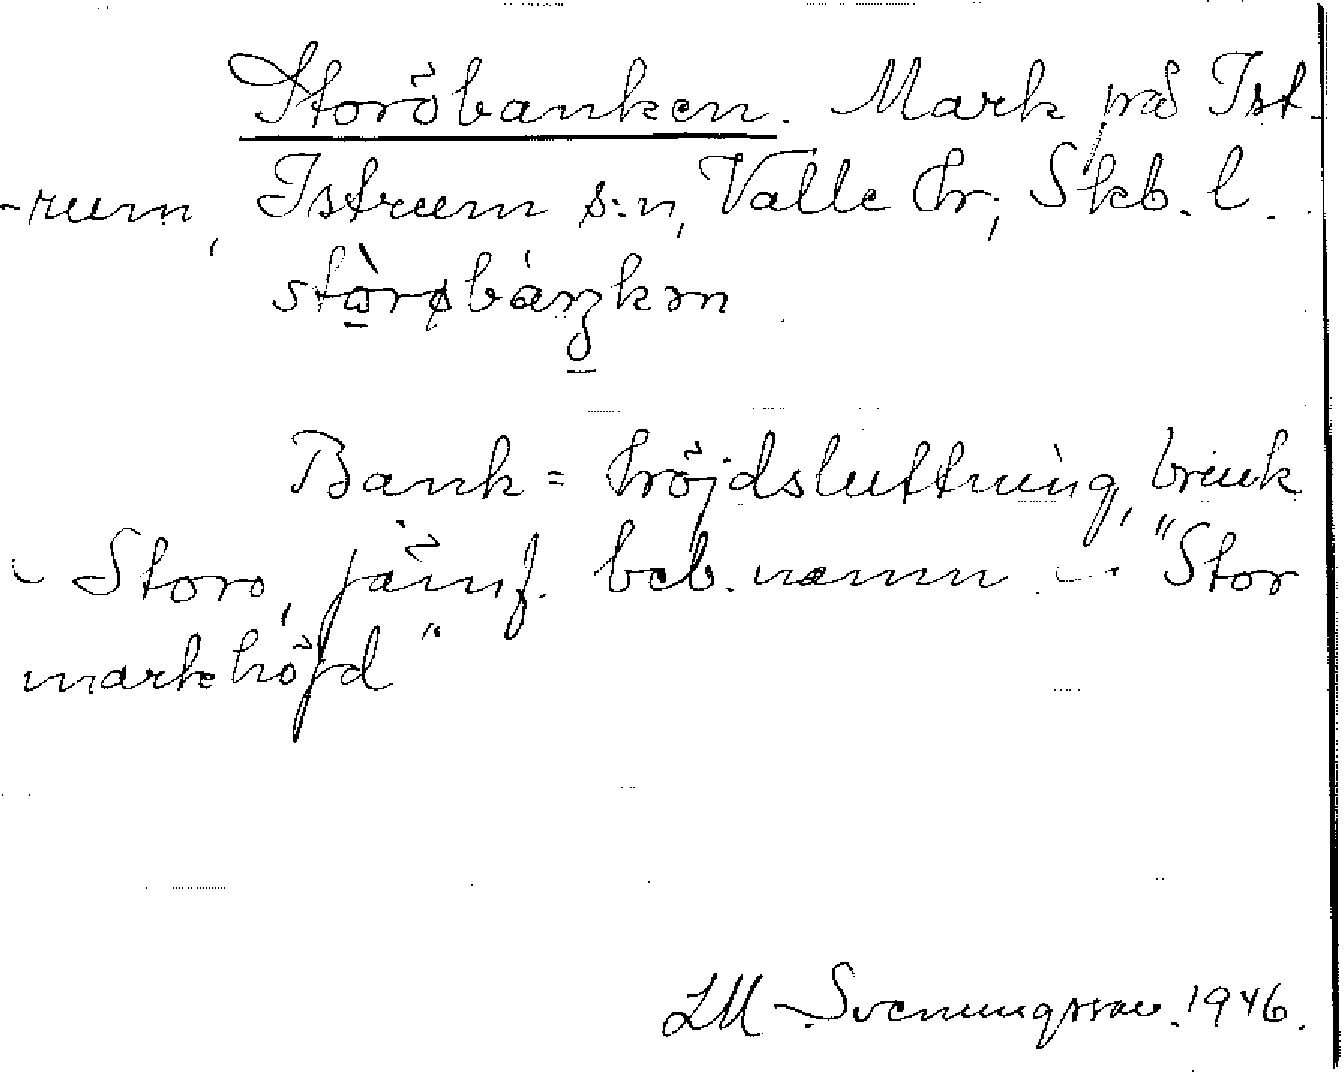 Storöbanken. Mark på Ist-
-rum, Istrum s:n, Valle hr, Skb. l.
Bank = höjdsluttning, brink
- Storö, jämf. beb.namn - "Stor
markhöjd"
LM Svenungsson. 1946.